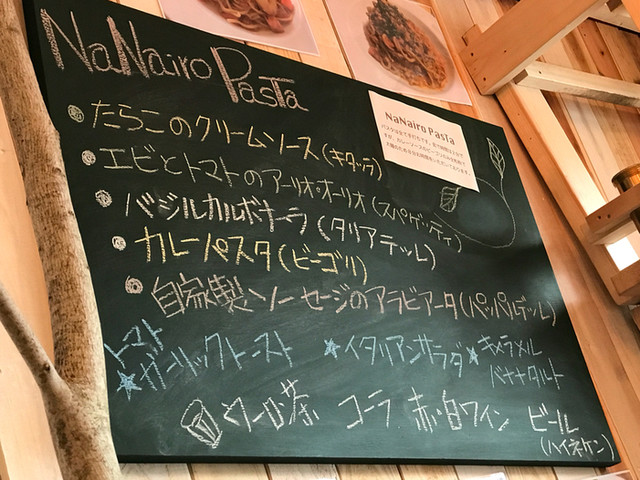 NaNairo Pasta
たらこのクリームソース(キタッラ)
エビとトマトのアーリオ・オーリオ(スパゲッティ)
バジルカルボナーラ(タリアテッレ)
カレーパスタ(ビーゴリ)
自家製ソーセージのアラビアータ(パッパルデッレ)
トマト
★ガーリックトースト ★イタリアンサラダ ★キャラメル
バナナタルト
ウーロン茶 コーラ 赤・白ワイン ビール
(ハイネケン)
NaNairo Pasta
パスタは全て手打ちです。